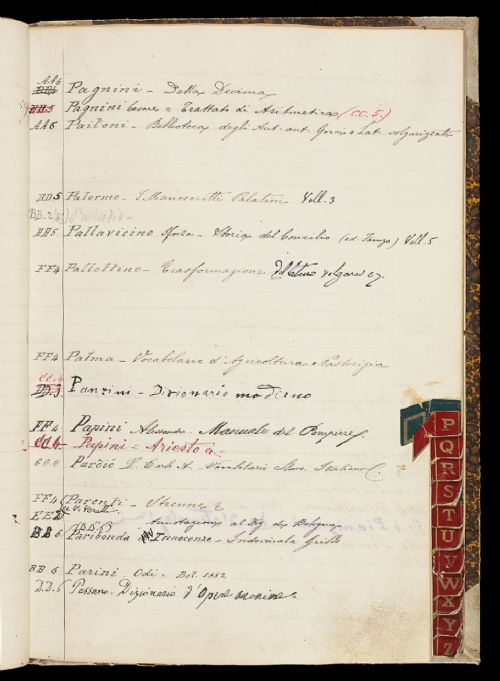 AA6
Pagnini - Della Decima
HH5 Pagnini Cesare = Trattato di Aritmetica (CC.5.)
AA6 Paitoni - Biblioteca degli Aut. ant. Greci e Lat. volgarizzati
DD.5 Palermo - I Manoscritti Palatini Voll. 3
BB.2 Palladio -
HH5 Pallavicino Sforza - Storia del Concilio (ed. Faenza) Voll. 5
FF4 Pallottino - Trasformazione
FF4 Palma - Vocabolario d'Agricoltura e Pastorizia
CC.4
DD.3 Panzini - Dizionario moderno
FF4 Papini Alessandro Manuale del Pompiere
CC6 - Papini = Ariosto
Parcić D. Carlo A. Vocabolario Slavo Italiano
FF4 Parenti - Strenne
EE2 - Annotazioni al Diz. di Bologna
BB.6
BB 6 Paribonda Innocenzo - Indovinala Grillo
BB 6 Parini Odi - Bol. 1852
D.D.6 Passano. Dizionario d'Opere anonime
P
Q
R
S
T
U
V
W
X
Y
Z